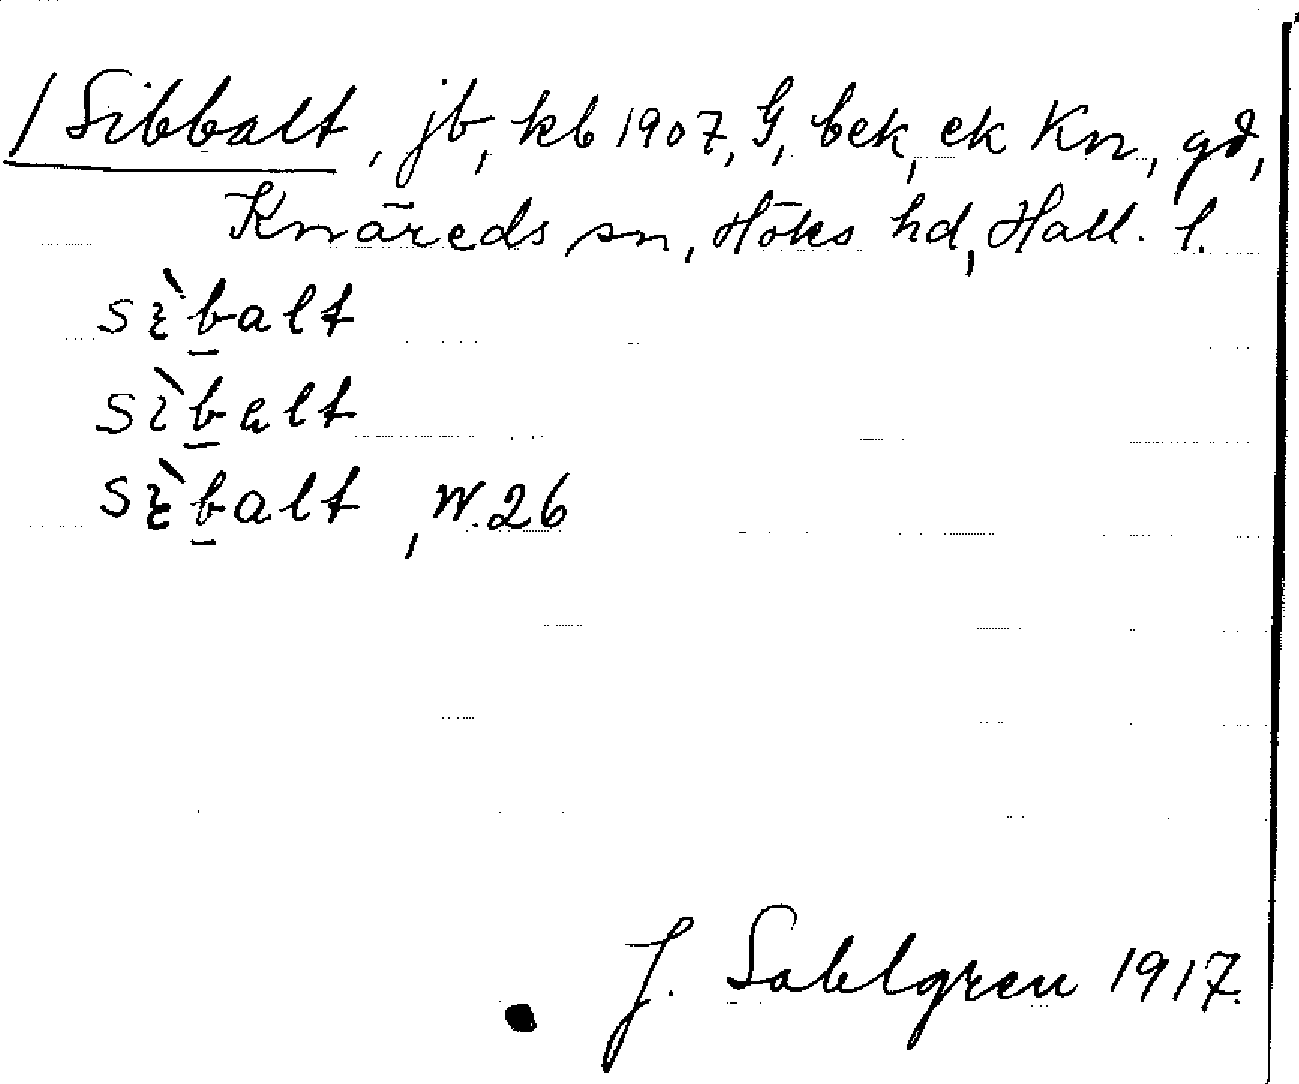 / Sibbalt, jb, kb 1907, G, bek, ek Kn, gd,
Knäreds sn, Höks hd, Hall. l.
sìb̲alt
sìb̲alt
sìb̲alt, W. 26
J. Sahlgren 1917.